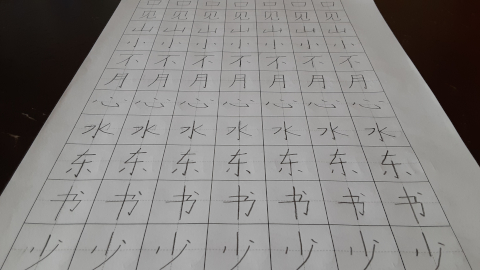 口 口 口 口 口 口 口
见 见 见 见 见 见 见
山 山 山 山 山 山 山
小 小 小 小 小 小 小
不 不 不 不 不 不 不
月 月 月 月 月 月 月
心 心 心 心 心 心 心
水 水 水 水 水 水 水
东 东 东 东 东 东 东
书 书 书 书 书 书 书
少 少 少 少 少 少 少